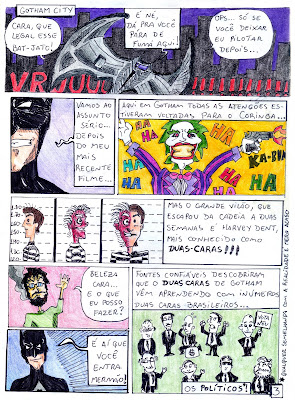 GOTHAM CITY
CARA, QUE
LEGAL ESSE
BAT-JATO!
É NÉ,
DÁ PRA VOCÊ
PARA DE
FUMÁ AQUI!
OPS... SÓ SE
VOCÊ DEIXAR
EU PILOTAR
DEPOIS...
VAMOS AO
ASSUNTO
SÉRIO...
DEPOIS
DO MEU
MAIS
RECENTE
FILME...
AQUI EM GOTHAM TODAS AS ATENÇÕES ES-
TIVERAM VOLTADAS PARA O CORINGA...
HA
HA
HA
HA
HA
HA
MAS O GRANDE VILÃO, QUE
ESCAPOU DA CADEIA A DUAS
SEMANAS E HARVEY DENT,
MAIS CONHECIDO COMO
DUAS-CARAS!!!
BELEZA
CARA...
E O QUE
EU POSSO
FAZER?
É AÍ QUE
VOCÊ
ENTRA
MERMÃO!
FONTES CONFIÁVEIS DESCOBRIRAM
QUE O DUAS CARAS DE GOTHAM
VÊM APRENDENDO COM INÚMEROS
DUAS CARAS BRASILEIROS...
VOTA
NEU
$
OS POLÍTICOS*!
3
* QUALQUER SEMELHANÇA COM A REALIDADE É MERO ACASO